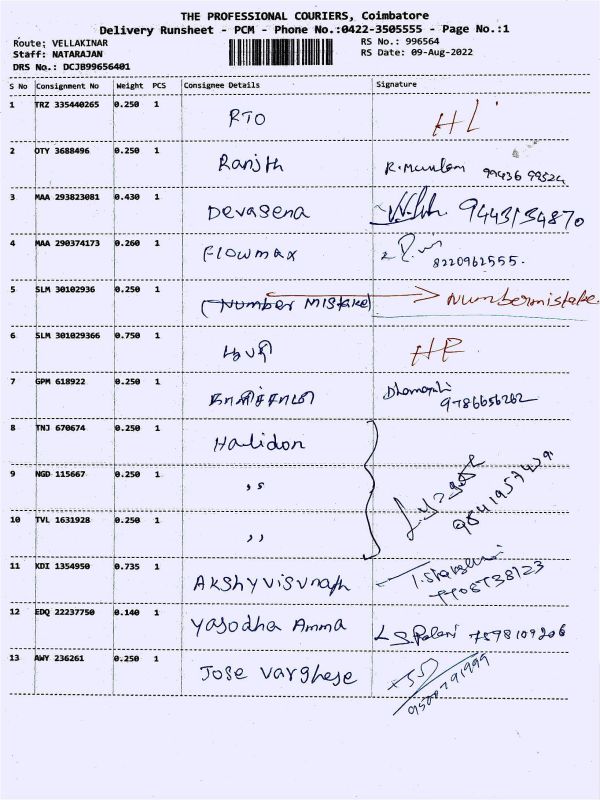 THE PROFESSIONAL COURIERS, Coimbatore
Delivery Runsheet - PCM - Phone No.:0422-3505555 - Page No.:1
Route: VELLAKINAR RS No.: 996564
Staff: NATARAJAN RS Date: 09-Aug-2022
DRS No.: DCJB99656401
S No Consignment No Weight PCS Consignee Details Signature
1 TRZ 335440265 0.250 1 RTO
2 OTY 3688496 0.250 1 Ranjth
3 MAA 293823081 0.430 1 Devasena 9443134870
4 MAA 290374173 0.260 1 Flowmax 8220962555.
5 SLM 30102936 0.250 1 (Number Mistake) Numbermistake.
6 SLM 301029366 0.750 1
7 GPM 618922 0.250 1 9786656262
8 TNJ 670674 0.250 1 Halidon
9 NGD 115667 0.250 1 ,,
10 TVL 1631928 0.250 1 ,,
11 KDI 1354950 0.735 1
12 EDQ 22237750 0.140 1 Yasodha Amma S.Palani 7598109206
13 AWY 236261 0.250 1 Jose Varghese